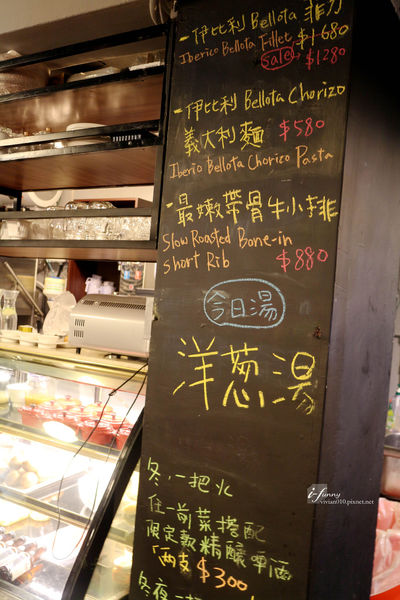 -伊比利 Bellota 菲力
Iberico Bellota Fillet $1680
sale→ $1280
-伊比利 Bellota Chorizo
義大利麵 $580
Iberio Bellota Chorico Pasta
-最嫩帶骨牛小排
Slow Roasted Bone-in
short Rib $880
今日湯
洋蔥湯
冬，一把火
任一前菜搭配
限定款精釀啤酒
「兩支$300」
冬夜一
i-funny
vivian010.pixnet.net